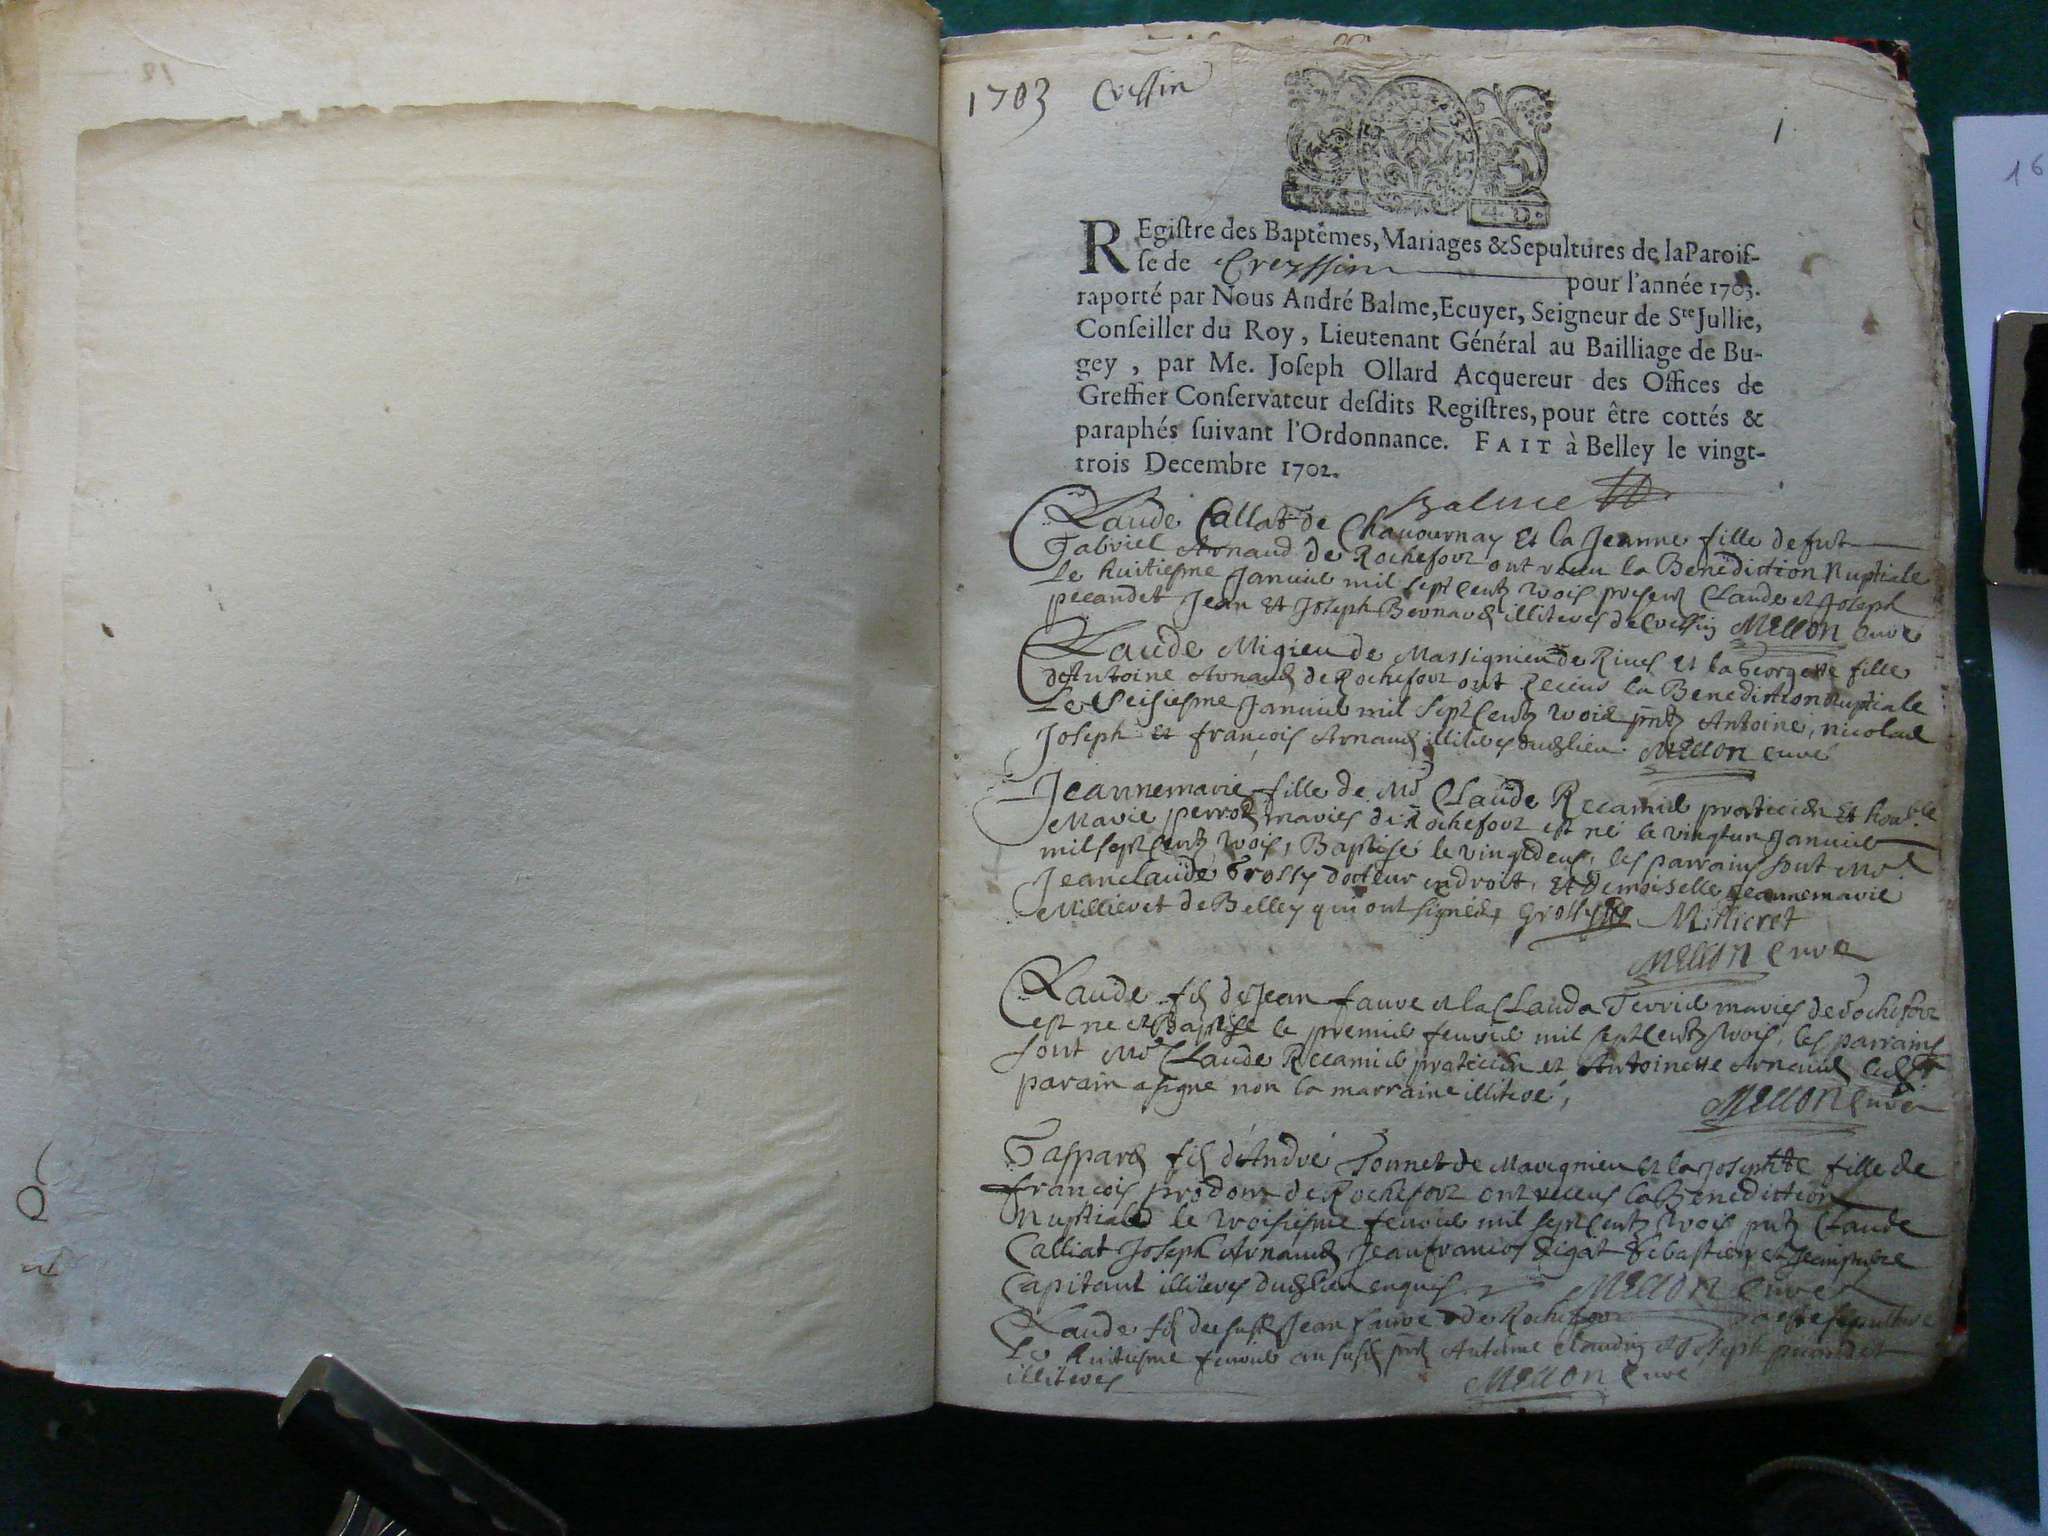 1703 Cressin
1
16
4 D
REgiſtre des Baptêmes, Mariages & Sepultures de la Paroiſ-
ſe de Creyssin pour l'année 1703.
raporté par Nous André Balme, Ecuyer, Seigneur de Ste Jullie,
Conſeiller du Roy, Lieutenant Général au Bailliage de Bu-
gey, par Me. Joſeph Ollard Acquereur des Offices de
Greffier Conſervateur deſdits Regiſtres, pour être cottés &
paraphés ſuivant l'Ordonnance. FAIT à Belley le vingt-
trois Decembre 1702.
Balme
Claude Callat de Chavournay et la Jeanne fille de fut
Gabriel Arnaud de Rochefort ont receu la Benediction Nuptiale
Le huitiesme Janvier mil sept cents trois present Claude et Joseph
pecandet Jean et Joseph Bernard illiteres de Cressin Mellon Curé
Claude Migieu de Massignieu de Rives et la Georgette fille
d'Antoine Arnaud de Rochefort ont Receus la Benediction Nuptiale
Le Seisiesme Janvier mil sept cents trois pnts Antoine, nicolas
Joseph et françois Arnaud illiteres dud lieu Mellon curé
Jeannemarie fille de Mr Claude Recamier praticien et honble
Marie perrod mariés de Rochefort est né le vingtun Janvier
mil sept cents trois, Baptisé le vingtdeux, les parrains sont Mr
Jeanclaude Grossy docteur en droit, et Demoiselle Jeannemarie
Millieret de Belley qui ont signés, Grossy Millieret
Mellon Curé
Claude fils de Jean faure et la Clauda Terrier mariés de Rochefort
est né et Baptisé le premier fevrier mil sept cents trois, les parrains
sont Mr Claude Recamier praticien et Antoinette Arnaud led
parain a signé non la marraine illiteré, Mellon Curé
Gaspard fils d'André Tonnet de Mavegnieu et la Josephte fille de
françois prodom de Rochefort ont receus la Benediction
Nuptiale le troisiesme fevrier mil sept cents trois pnts Claude
Calliat Joseph Arnaud Jeanfrancois Sebastien et Jeanpierre
Capitant illiteres dud lieu enquis Mellon Curé
Claude fils de susd Jean faure de Rochefort a esté sepulturé
Le huitiesme fevrier an susd pnts Antoine Claudin et Joseph pecandet
illiteres Mellon Curé